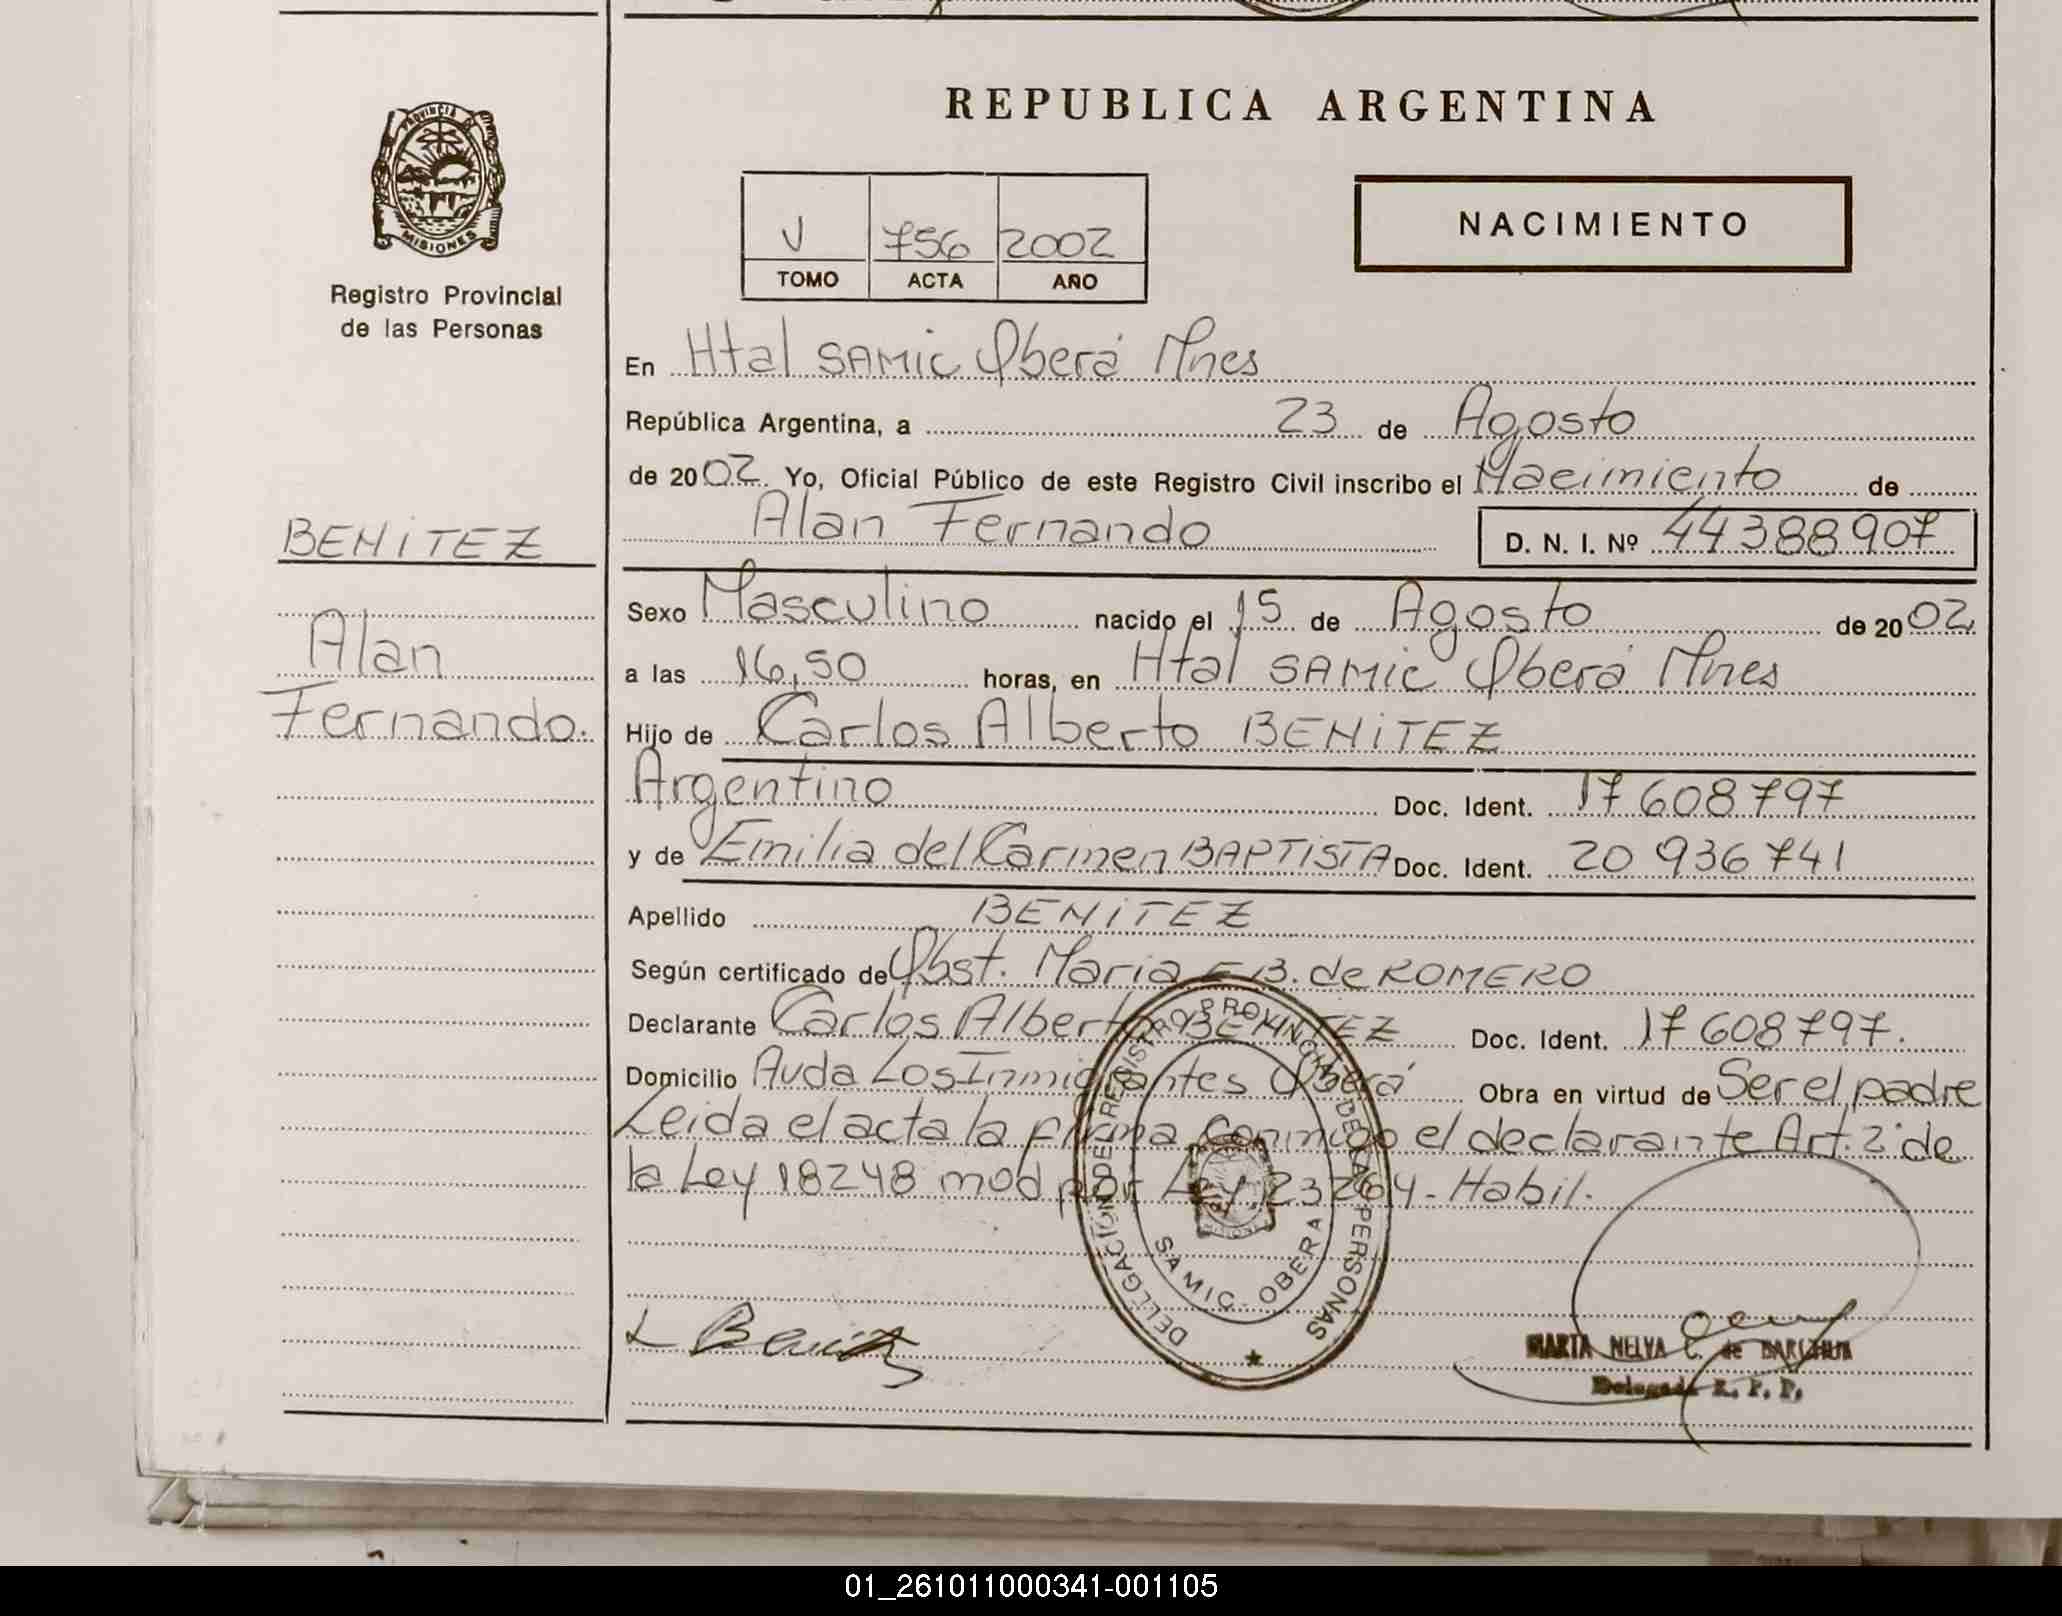 REPUBLICA ARGENTINA
PROVINCIA DE
MISIONES
Registro Provincial
de las Personas
V 756 2002
TOMO ACTA AÑO
NACIMIENTO
En Htal SAMiC Oberá Mnes
República Argentina, a 23 de Agosto
de 2002 Yo, Oficial Público de este Registro Civil inscribo el Nacimiento de
Alan Fernando D. N. I. Nº 44388907
BENiTEZ
Alan
Fernando.
Sexo Masculino nacido el 15 de Agosto de 2002
a las 16,50 horas, en Htal SAMiC Oberá Mnes
Hijo de Carlos Alberto BENiTEZ
Argentino Doc. Ident. 17608797
y de Emilia del Carmen BAPTISTA Doc. Ident. 20 936 741
Apellido BENiTEZ
Según certificado de Obst. Maria E B. de ROMERO
Declarante Carlos Alberto BENITEZ Doc. Ident. 17 608797.
Domicilio Avda Los Inmigrantes Oberá Obra en virtud de Ser el padre
Leida el acta la firma conmigo el declarante Art. 2º de
la Ley 18248 mod por Ley 23264 - Habil.
DELEGACION DEL REGISTRO PROVINCIAL DE LAS PERSONAS
SAMIC - OBERA
MARTA NELVA C. de
Delegada R. P. P.
01_261011000341-001105